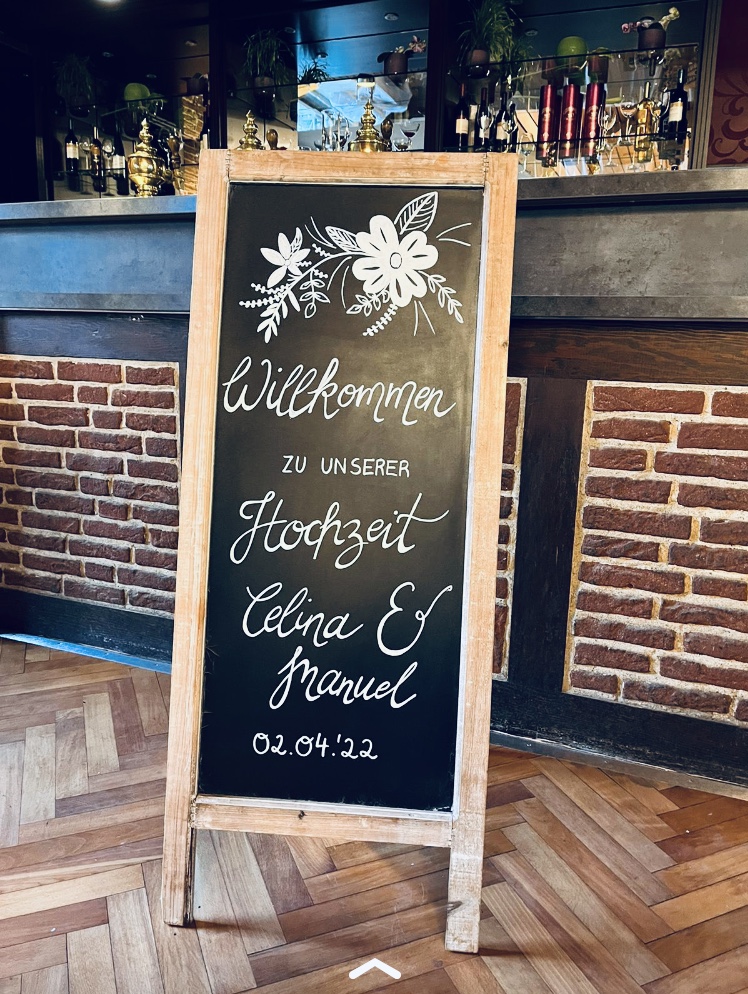 Willkommen
ZU UNSERER
Hochzeit
Celina &
Manuel
02.04.'22